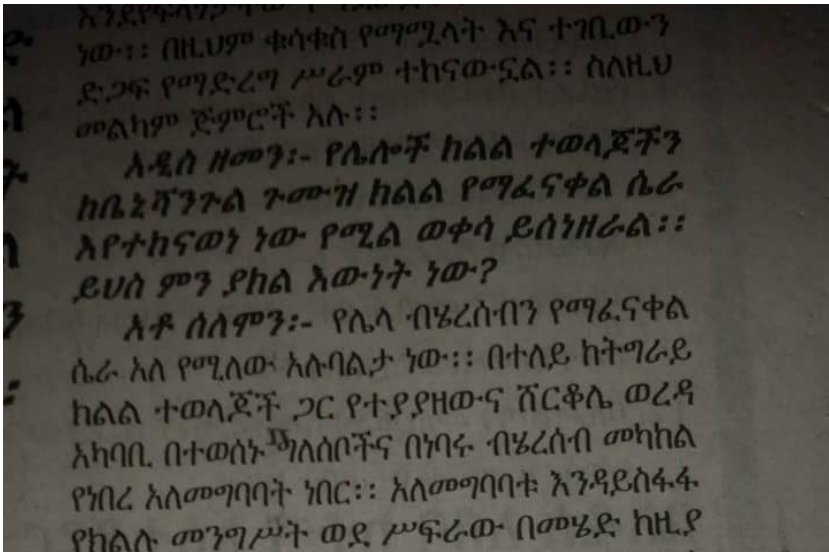 ነው፡፡ በዚህም ቁሳቁስ የማሟላት እና ተገቢውን
ድጋፍ የማድረግ ሥራም ተከናውኗል፡፡ ስለዚህ
መልካም ጅምሮች አሉ፡፡
አዲስ ዘመን፡- የሌሎች ክልል ተወላጆችን
ከቤኒሻንጉል ጉሙዝ ክልል የማፈናቀል ሴራ
እየተከናወነ ነው የሚል ወቀሳ ይሰነዘራል፡፡
ይህስ ምን ያክል እውነት ነው?
አቶ ሰለሞን፡- የሌላ ብሄረሰብን የማፈናቀል
ሴራ አለ የሚለው አሉባልታ ነው፡፡ በተለይ ከትግራይ
ክልል ተወላጆች ጋር የተያያዘውና ሸርቆሌ ወረዳ
አካባቢ በተወሰኑ ግለሰቦችና በነባሩ ብሄረሰብ መካከል
የነበረ አለመግባባት ነበር፡፡ አለመግባባቱ እንዳይስፋፋ
የክልሉ መንግሥት ወደ ሥፍራው በመሄድ ከዚያ